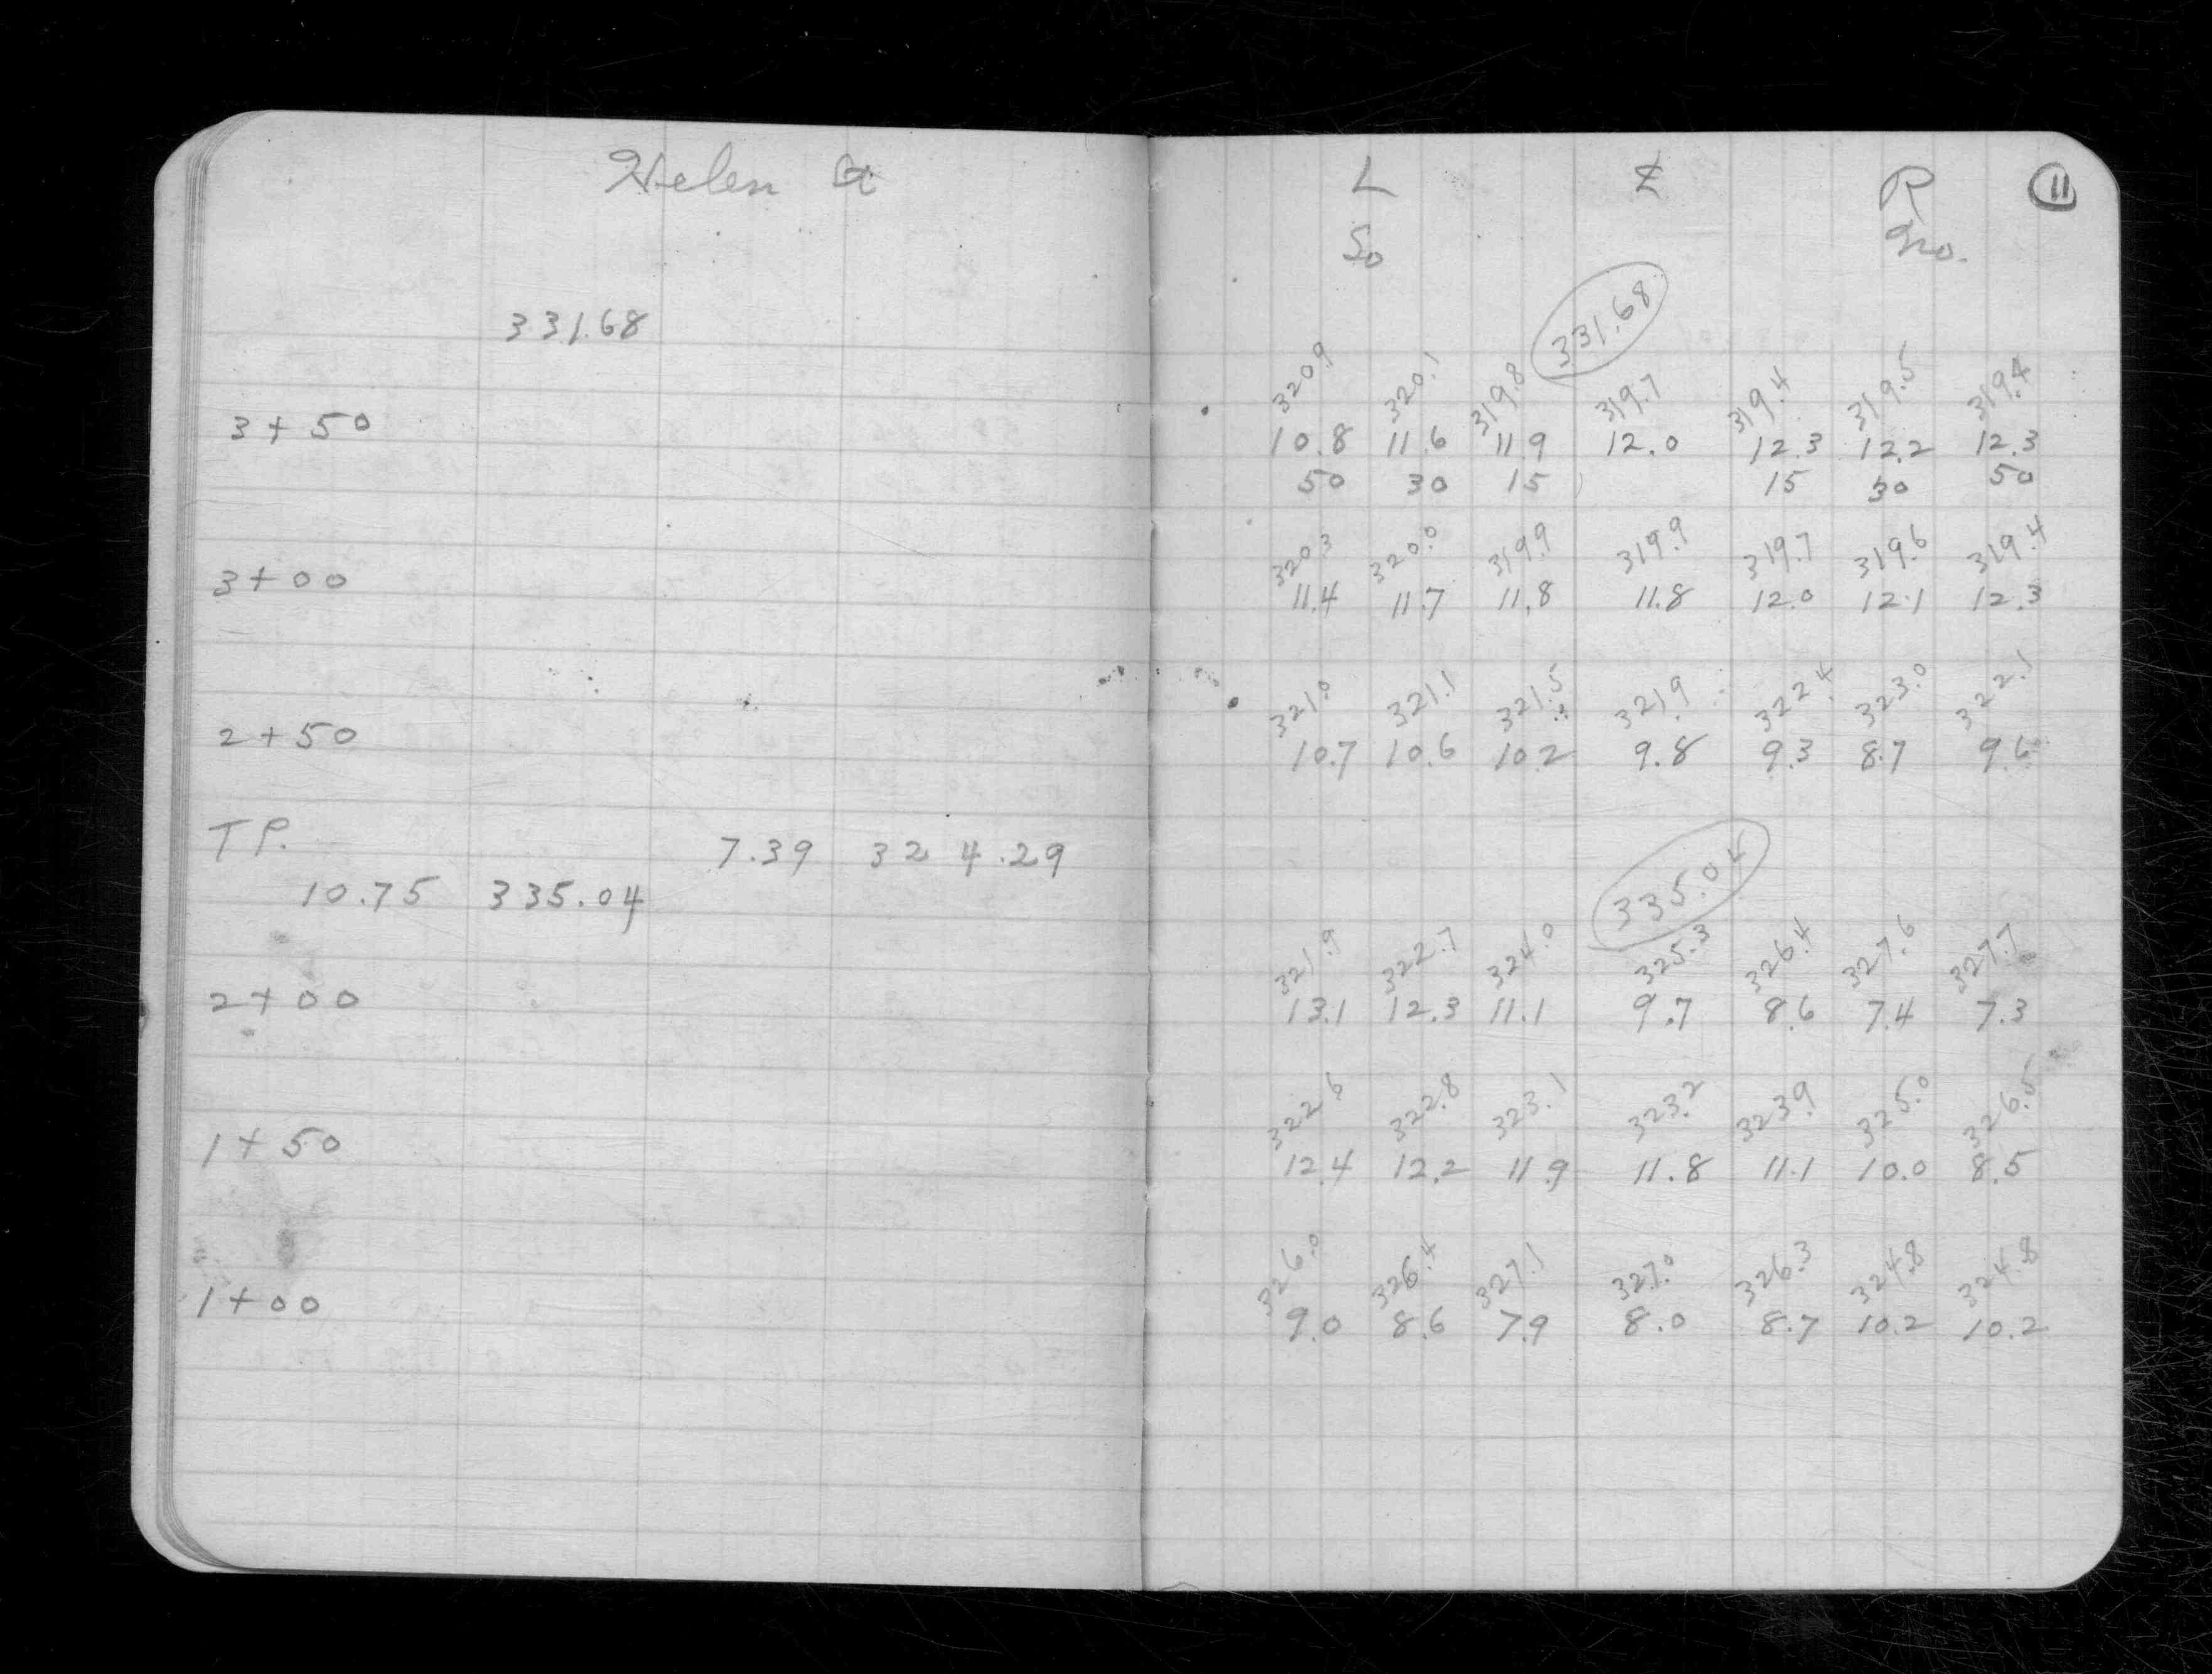 Helen St
331.68
3+50
3+00
2+50
T.P.
7.39 324.29
10.75 335.04
2+00
1+50
1+00
L ℄ R 11
So No.
331.68
320.9 320.1 319.8 319.7 319.4 319.5 319.4
10.8 11.6 11.9 12.0 12.3 12.2 12.3
50 30 15 15 30 50
320.3 320.0 319.9 319.9 319.7 319.6 319.4
11.4 11.7 11.8 11.8 12.0 12.1 12.3
321.0 321.1 321.5 321.9 322.4 323.0 322.1
10.7 10.6 10.2 9.8 9.3 8.7 9.6
335.04
321.9 322.7 324.0 325.3 326.4 327.6 327.7
13.1 12.3 11.1 9.7 8.6 7.4 7.3
322.6 322.8 323.1 323.2 323.9 325.0 326.5
12.4 12.2 11.9 11.8 11.1 10.0 8.5
326.0 326.4 327.1 327.0 326.3 324.8 324.8
9.0 8.6 7.9 8.0 8.7 10.2 10.2